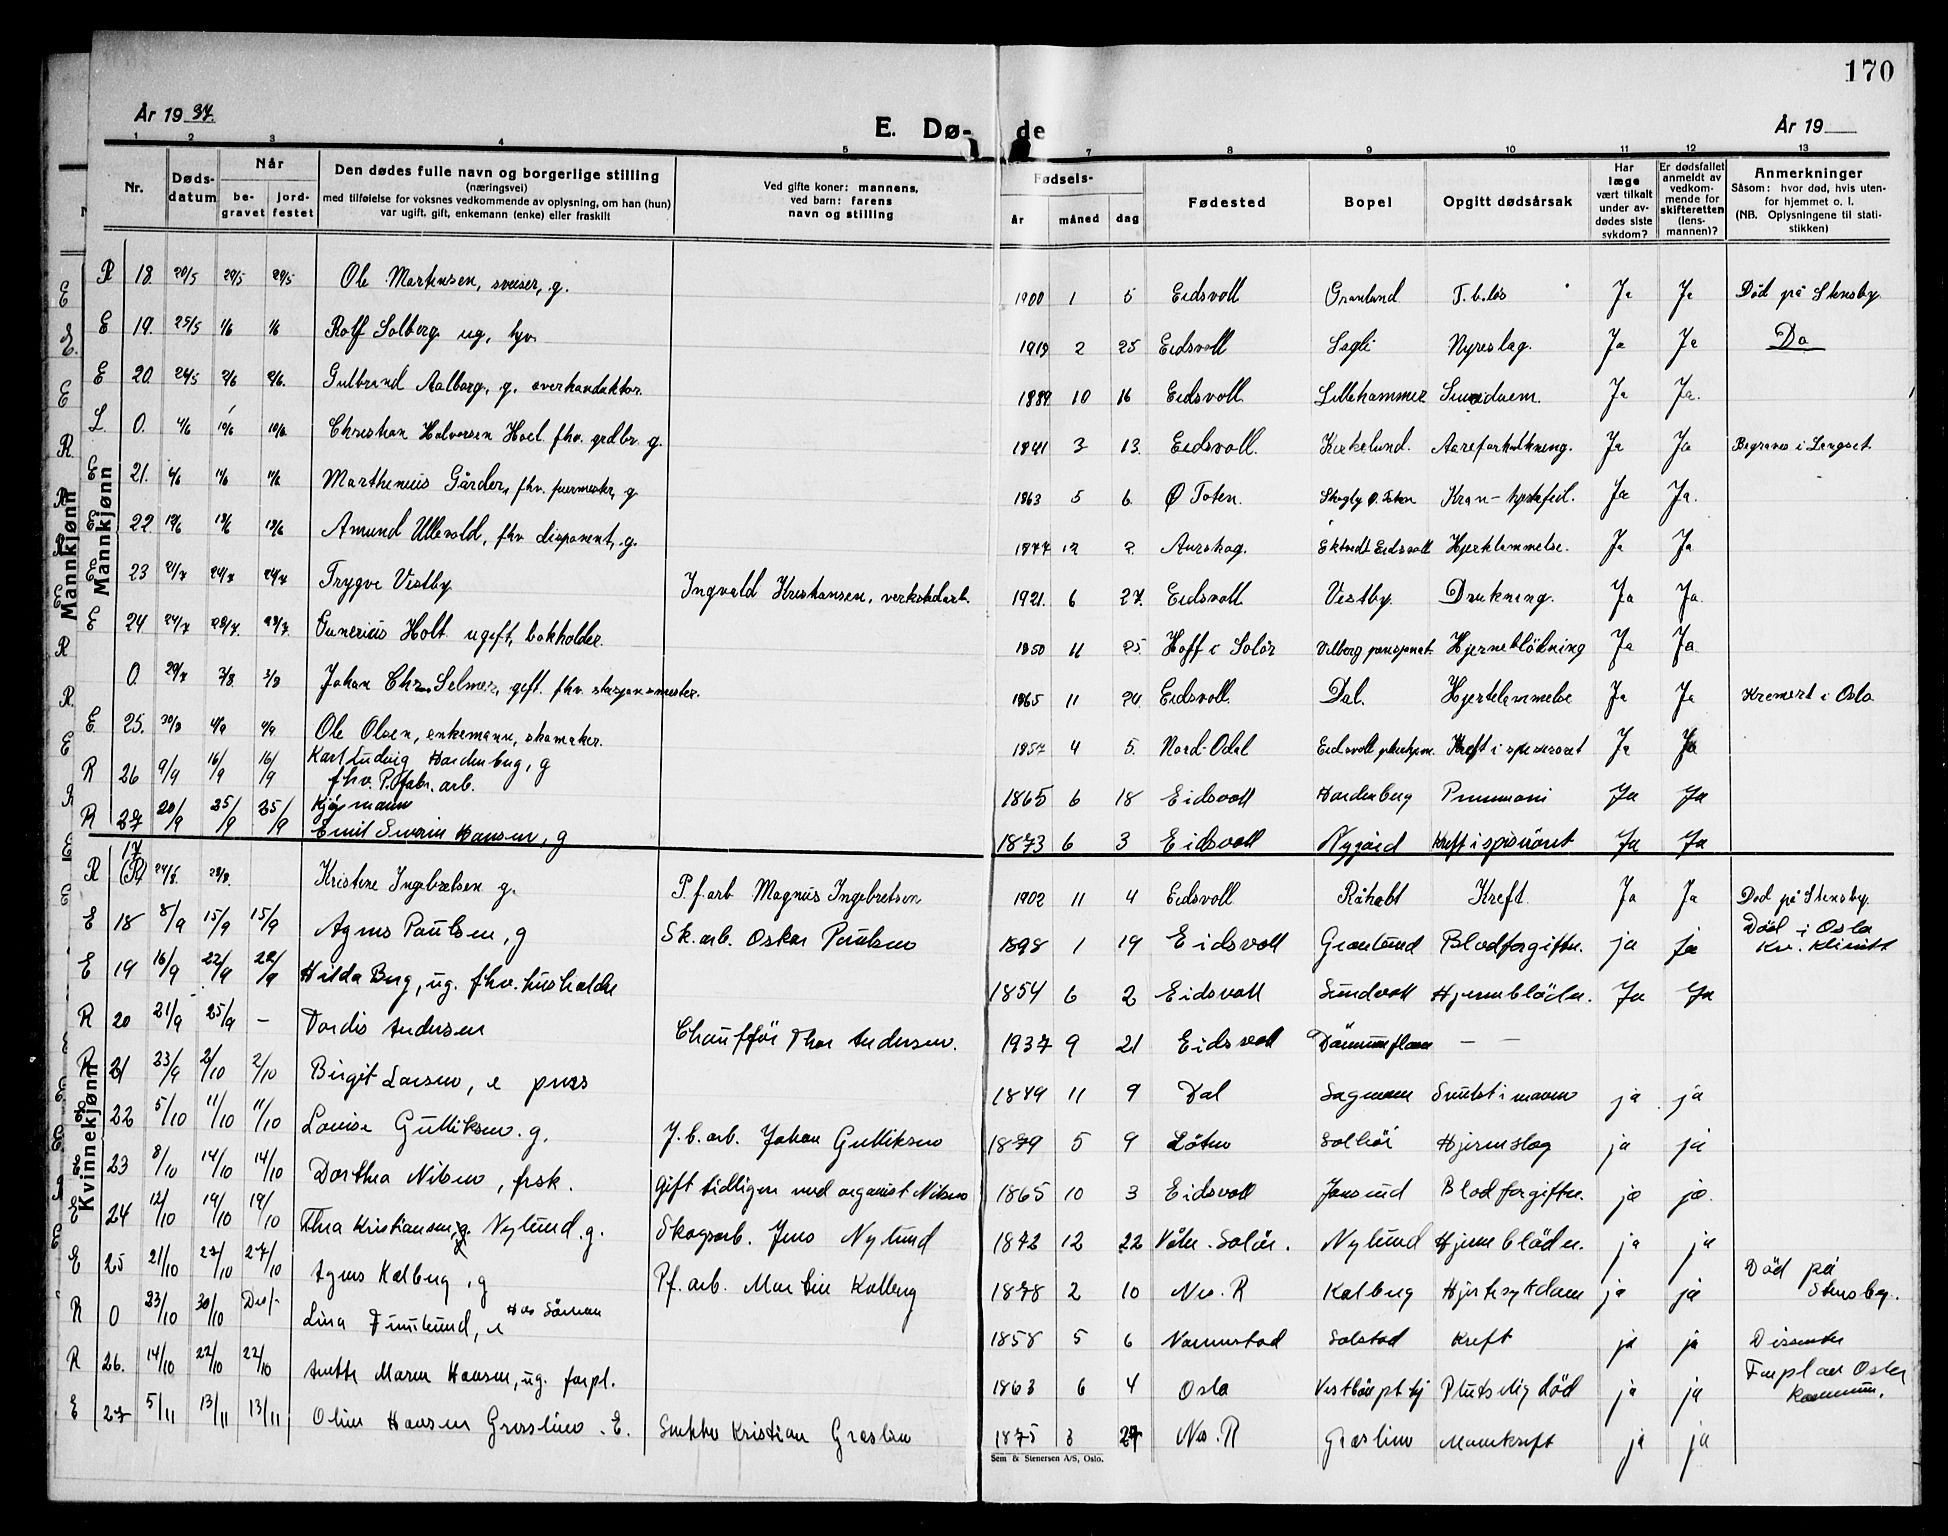 170
År 19 37.
E. Dø- de
År 19
1 2 3 4 5 7 8 9 10 11 12 13
Nr.
Døds-
datum
Når
be-
gravet
jord-
festet
Den dødes fulle navn og borgerlige stilling
(næringsvei)
med tilføielse for voksnes vedkommende av oplysning, om han (hun)
var ugift, gift, enkemann (enke) eller fraskilt
Ved gifte koner: mannens,
ved barn: farens
navn og stilling
Fødsels-
år måned dag
Fødested
Bopel
Opgitt dødsårsak
Har
læge
vært tilkalt
under av-
dødes siste
sykdom?
Er dødsfallet
anmeldt av
vedkom-
mende for
skifteretten
(lens-
mannen)?
Anmerkninger
Såsom: hvor død, hvis uten-
for hjemmet o. l.
(NB. Oplysningene til stati-
stikken)
Mannkjønn
Mannkjønn
R 18. 20/5 29/5 29/5 Ole Martinsen, sveiser, g. 1900 1 5 Eidsvoll Granlund T.b.løs Ja Ja Død på Stensby
E 19. 25/5 1/6 1/6 Rolf Solberg ug, 1919 2 25 Eidsvoll Sagli Nyreslag. Ja Ja Do
E 20. 24/5 2/6 2/6. Gulbrand Aalborg, g. overkonduktør. 1889 10 16 Eidsvoll Lillehammer Ja Ja.
L. 0. 4/6 10/6 10/6 Christian Halvorsen Hoel fhv. grdbr. g. 1841 3 13. Eidsvoll. Kirkelund. Aareforkalkning. Ja Ja Begraves i Langset
E 21. Marthenius Gårder, fhv. g 1863 5 6 Ø Toten. Skogly Ø. Toten Ja Ja.
E 22 12/6 18/6 18/6 Amund Ullevold, fhv disponent, g. 1877 12 2 Aurskog. Eidsvoll Hjertelammelse. Ja Ja
E 23 21/7 24/7 24/7 Trygve Vestby Ingvald Kristiansen, verkstedarb. 1921. 6 27. Eidsvoll Vestby. Drukning. Ja Ja
E 24 24/7 28/7. 28/7 Gunerius Holt ugift, bokholder. 1850 11 25. Hoff i Solør Vilberg pensjonat. Hjerneblödning Ja Ja
0 29/7 3/8. 3/8 Johan Chr. Selmer, gift. fhv. stasjonsmester. 1865 11 24 Eidsvoll Dal. Hjertelammelse Ja Ja Kremert i Oslo
E 25. 30/8 4/9 4/9 Ole Olsen, enkemann, skomaker. 1857 4 5. Nord-Odal Eidsvoll pleiehjem. Kreft i spiserøret Ja Ja
R 26 9/9 16/9 16/9 Karl Ludvig Hardenberg, g
fhv. P.ffabr. arb. 1865 6 18 Eidsvoll Hardenberg Pneumoni Ja Ja
Kjøpmann
R 27 20/9 25/9 25/9 Emil Severin Hansen, g 1873 6 3 Eidsvoll Nygård Kreft i spisröret Ja Ja
Kvinnekjønn
R 17 (R) 24/8. 28/8. Kristine Ingebretsen g. P.f.arb Magnus Ingebretsen 1902 11 4 Eidsvoll Råholt Kreft. Ja Ja Død på Stensby.
E 18 8/9 15/9 15/9 Agnes Paulsen, g Sk.arb. Oskar Paulsen 1898 1 19 Eidsvoll Granlund Blodforgiftn. ja ja Död i Oslo
Kv. klinikk
E 19 16/9 22/9 22/9 Hilda Berg, ug. fhv. husholdn 1854 6 2 Eidsvoll Sundvoll Hjerneblödn. Ja Ja
R 20 21/9 25/9 — Tordis Andersen Chaufför Thor Andersen. 1937 9 21 Eidsvoll — —
R 21 23/9 2/10 2/10 Birgit Larsen, e 1849 11 9 Dal Sagmoen Svulst i maven ja ja
22 5/10 11/10 11/10 Lovise Gulliksen. g. J.b.arb. Johan Gulliksen 1879 5 9 Löten Solhöi Hjerneslag ja ja
23 8/10 14/10 14/10 Dorthea Nilsen, frsk. gift tidligere med organist Nilsen 1865 10 3 Eidsvoll Jønsrud Blodforgiftn. ja ja.
E 24 12/10 19/10 19/10 Thea Kristiansen, g. Nylund. g. Skogsarb. Jens Nylund 1872 12 22 Våler. Solör. Nylund Hjerneblödn. ja ja
E 25 21/10 27/10 27/10 Agnes Kolberg, g Pf.arb. Martin Kolberg 1878 2 10 Nes. R Kolberg Hjertesykdom ja ja Död på
Stensby.
R 0 23/10 30/10 Diss. Lina Furulund, e 1858 5 6 Nannestad Solstad Kreft ja ja Dissenter
R 26. 14/10 22/10 22/10 Anette Maren Hansen, ug. forpl. 1863 6 4 Oslo Plutselig död ja ja Forpl av Oslo
Kommun.
E 27 5/11 13/11 13/11 Oline Hansen Græslien. E. Kristian Græslien 1875 3 27 Nes. R Græslien Mavekreft ja ja
Sem & Stenersen A/S, Oslo.